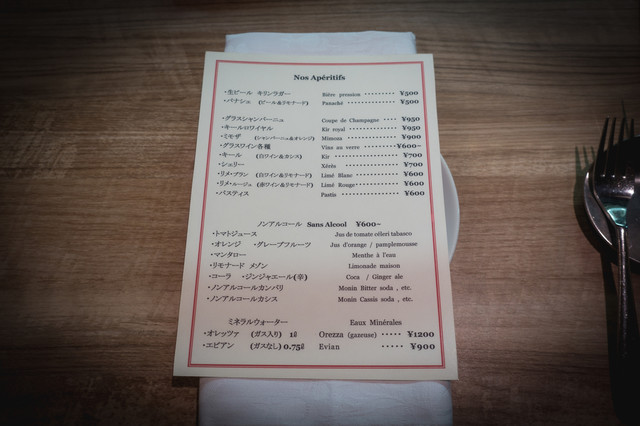 Nos Apéritifs
・生ビール キリンラガー Bière pression ・・・・・・・・・ ¥500
・パナシュ (ビール&リモナード) Panaché ・・・・・・・・・・・・ ¥500
・グラスシャンパーニュ Coupe de Champagne ・・・・ ¥950
・キールロワイヤル Kir royal ・・・・・・・・・・・・ ¥950
・ミモザ (シャンパーニュ&オレンジ) Mimoza ・・・・・・・・・・・・ ¥900
・グラスワイン各種 Vins au verre ・・・・・・・・ ¥600~
・キール (白ワイン&カシス) Kir ・・・・・・・・・・・・・・・・ ¥700
・シェリー Xérès ・・・・・・・・・・・・・・ ¥700
・リメ・ブラン (白ワイン&リモナード) Limé Blanc ・・・・・・・・・・ ¥600
・リメ・ルージュ (赤ワイン&リモナード) Limé Rouge・・・・・・・・・・ ¥600
・パスティス Pastis ・・・・・・・・・・・・・・ ¥600
ノンアルコール Sans Alcool ¥600~
・トマトジュース Jus de tomate céleri tabasco
・オレンジ ・グレープフルーツ Jus d'orange / pamplemousse
・マンタロー Menthe à l'eau
・リモナード メゾン Limonade maison
・コーラ ・ジンジャエール(辛) Coca / Ginger ale
・ノンアルコールカンパリ Monin Bitter soda , etc.
・ノンアルコールカシス Monin Cassis soda , etc.
ミネラルウォーター Eaux Minérales
・オレッツァ (ガス入り) 1ℓ Orezza (gazeuse) ・・・・・ ¥1200
・エビアン (ガスなし) 0.75ℓ Evian ・・・・・ ¥900